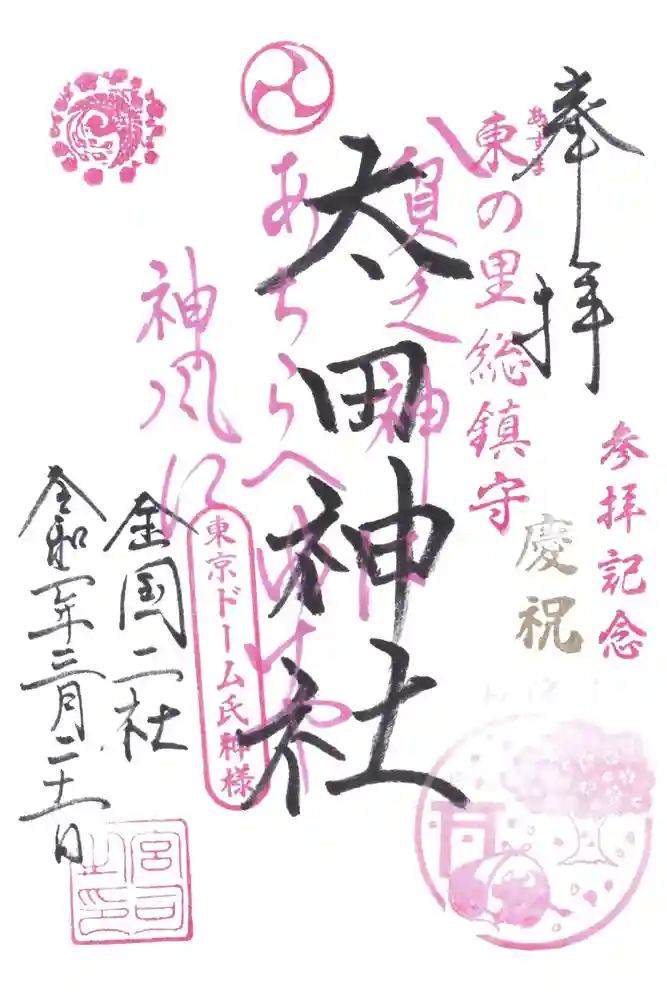 奉拝
参拝記念
慶祝
あずま
東の里総鎮守
貧乏神は
太田神社
あちらへゆけや
神風に
東京ドーム氏神様
全国二社
令和二年三月二十一日
宮司之印